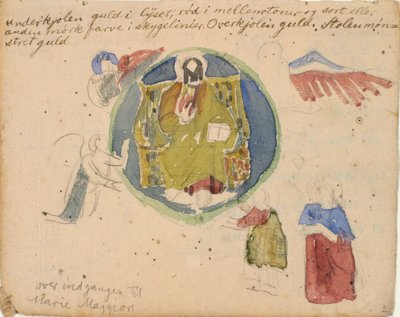 Underkjolen guld i lyset, röd i mellemtoner og sort eller
anden mörk farve i skyggelinier. Overkjolen guld. Stolen mön-
stret guld
over indgangen til
Marie Maggiore